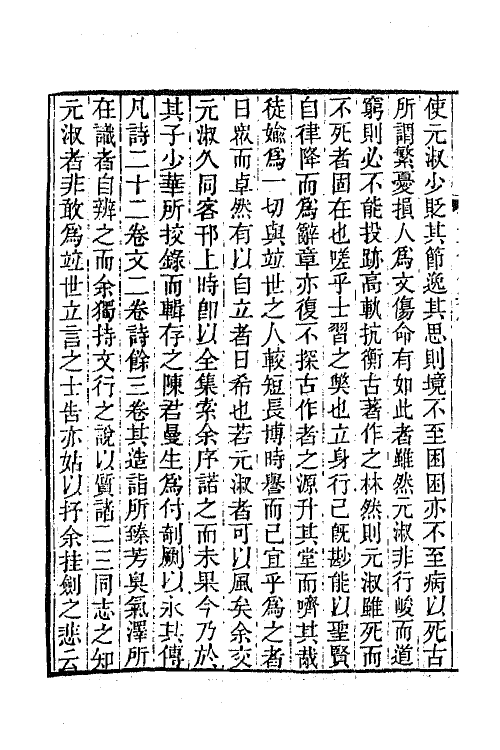 使元淑少貶其節逸其思則境不至困困亦不至病以死古
所謂繁憂損人為文傷命有如此者雖然元淑非行峻而道
窮則必不能投跡高軌抗衡古著作之林然則元淑雖死而
不死者固在也嗟乎士習之獘也立身行己旣尠能以聖賢
自律降而為辭章亦復不探古作者之源升其堂而嚌其胾
徒媮為一切與竝世之人較短長博時譽而已宜乎為之者
日衆而卓然有以自立者日希也若元淑者可以風矣余交
元淑久同客邗上時卽以全集索余序諾之而未果今乃於
其子少華所挍錄而輯存之陳君曼生為付剞劂以永其傳
凡詩二十二卷文二卷詩餘三卷其造詣所臻芳臭氣澤所
在識者自辨之而余獨持文行之說以質諸二三同志之知
元淑者非敢為竝世立言之士告亦姑以抒余挂劍之悲云